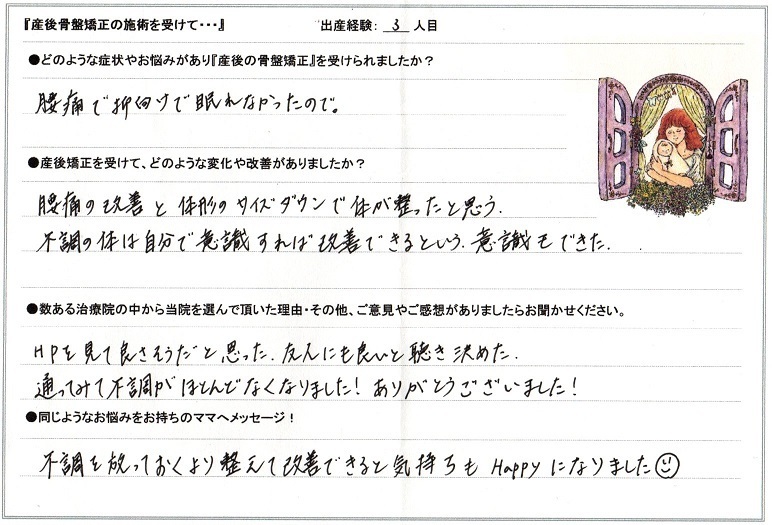 『産後骨盤矯正の施術を受けて・・・』 出産経験： 3 人目
●どのような症状やお悩みがあり『産後の骨盤矯正』を受けられましたか？
腰痛で仰向けで眠れなかったので。
●産後矯正を受けて、どのような変化や改善がありましたか？
腰痛の改善と体形のサイズダウンで体が整ったと思う.
不調の体は自分で意識すれば改善できるという、意識もできた.
●数ある治療院の中から当院を選んで頂いた理由・その他、ご意見やご感想がありましたらお聞かせください。
HPを見て良さそうだと思った. 友人にも良いと聴き決めた.
通ってみて不調がほとんどなくなりました！ありがとうございました！
●同じようなお悩みをお持ちのママへメッセージ！
不調を放っておくより整えて改善できると気持ちもHappyになりました☺